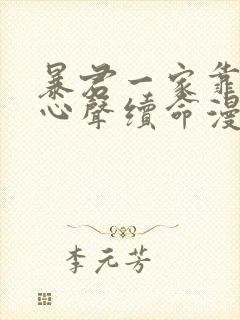 暴君一家靠
心聲續命漫
李元芳